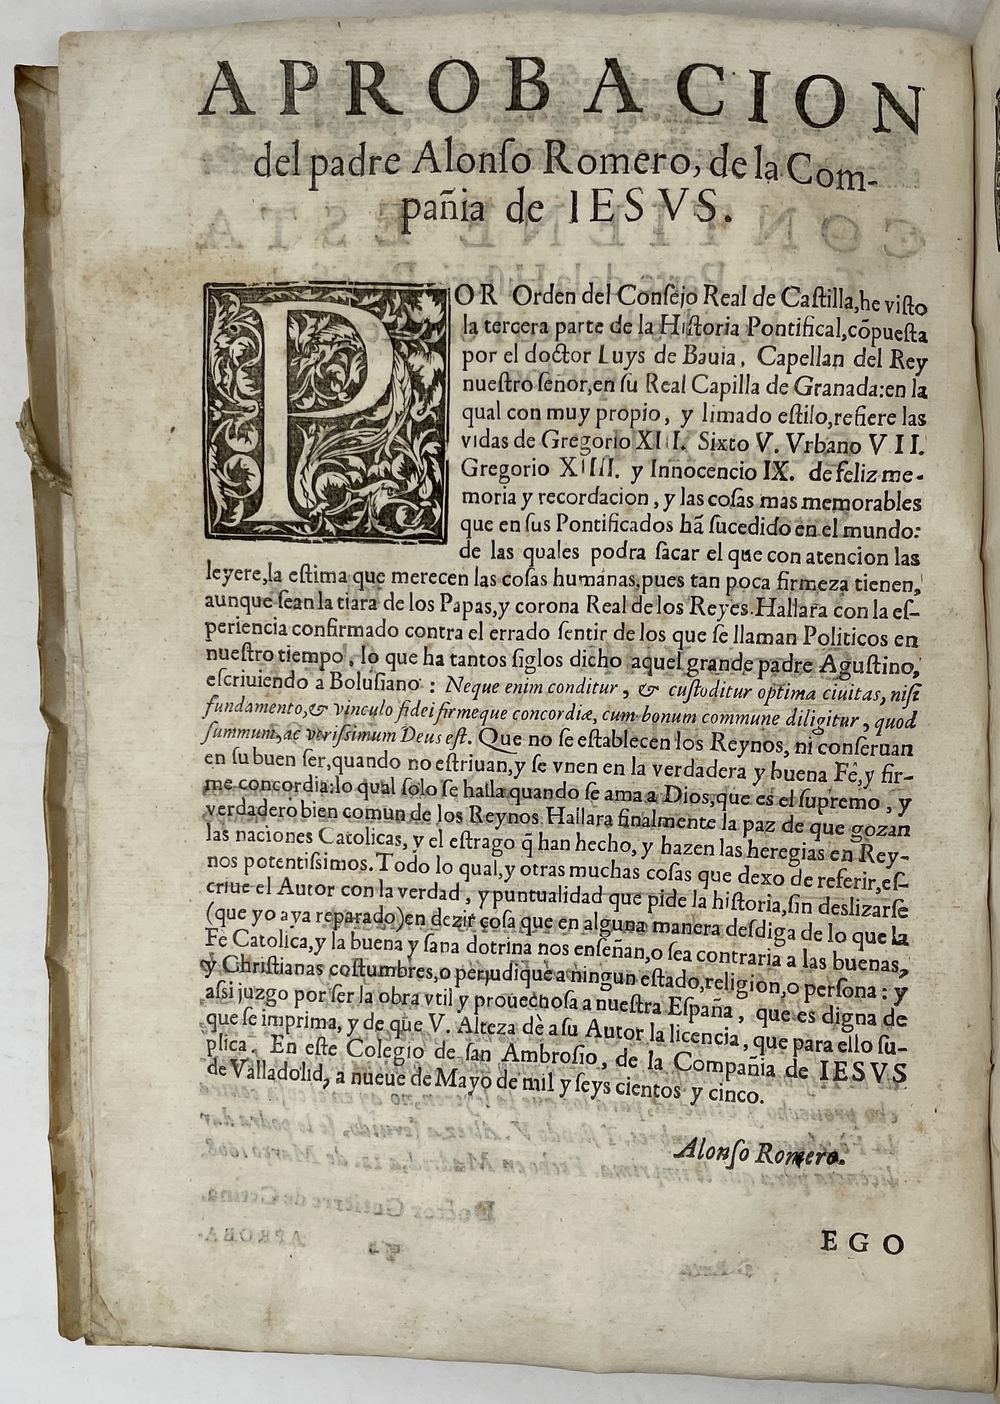 APROBACION
del padre Alonſo Romero, de la Com-
pañia de IESVS.
POR Orden del Conſejo Real de Caſtilla, he viſto
la tercera parte de la Hiſtoria Pontifical, cõpueſta
por el doctor Luys de Bauia, Capellan del Rey
nueſtro ſeñor, en ſu Real Capilla de Granada: en la
qual con muy propio, y limado eſtilo, refiere las
vidas de Gregorio XIII. Sixto V. Vrbano VII.
Gregorio XIIII. y Innocencio IX. de feliz me-
moria y recordacion, y las coſas mas memorables
que en ſus Pontificados hã ſucedido en el mundo:
de las quales podra ſacar el que con atencion las
leyere, la eſtima que merecen las coſas humanas, pues tan poca firmeza tienen,
aunque ſean la tiara de los Papas, y corona Real de los Reyes. Hallara con la eſ-
periencia confirmado contra el errado ſentir de los que ſe llaman Politicos en
nueſtro tiempo, lo que ha tantos ſiglos dicho aquel grande padre Aguſtino,
eſcriuiendo a Boluſiano: Neque enim conditur, & cuſtoditur optima ciuitas, niſi
fundamento, & vinculo fidei firmeque concordiæ, cum bonum commune diligitur, quod
ſummum, ac veriſsimum Deus eſt. Que no ſe eſtablecen los Reynos, ni conſeruan
en ſu buen ſer, quando no eſtriuan, y ſe vnen en la verdadera y buena Fê, y fir-
me concordia: lo qual ſolo ſe halla quando ſe ama a Dios, que es el ſupremo, y
verdadero bien comun de los Reynos. Hallara finalmente la paz de que gozan
las naciones Catolicas, y el eſtrago q̃ han hecho, y hazen las heregias en Rey-
nos potentiſsimos. Todo lo qual, y otras muchas coſas que dexo de referir, eſ-
criue el Autor con la verdad, y puntualidad que pide la hiſtoria, ſin deslizarſe
(que yo aya reparado) en dezir coſa que en alguna manera deſdiga de lo que la
Fè Catolica, y la buena y ſana dotrina nos enſeñan, o ſea contraria a las buenas,
y Chriſtianas coſtumbres, o perjudique a ningun eſtado, religion, o perſona: y
aſsi juzgo por ſer la obra vtil y prouechoſa a nueſtra Eſpaña, que es digna de
que ſe imprima, y de que V. Alteza dè a ſu Autor la licencia, que para ello ſu-
plica. En eſte Colegio de ſan Ambroſio, de la Compañia de IESVS
de Valladolid, a nueue de Mayo de mil y ſeys cientos y cinco.
Alonſo Romero.
EGO